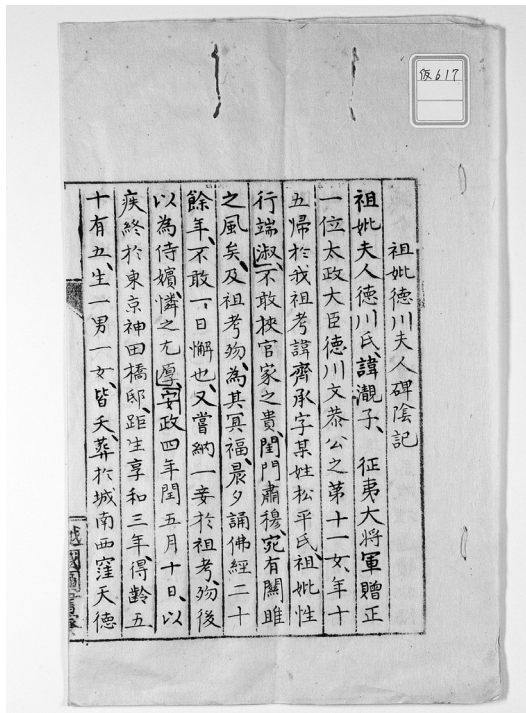 仮617
祖妣徳川夫人碑陰記
祖妣夫人徳川氏、諱灔子、 征夷大将軍贈正
一位太政大臣徳川文恭公之第十一女、年十
五帰於我祖考諱齊承字某姓松平氏、祖妣性
行端淑、不敢挾官家之貴、閨門肅穆、宛有關雎
之風矣、及祖考歿、為其冥福、晨夕誦佛經二十
餘年、不敢一日懈也、又嘗納一妾於祖考、歿後
以為侍嬪、憐之尤厚、安政四年閏五月十日、以
疾終於東京神田橋邸、距生享和三年、得齡五
十有五、生一男一女、皆夭、葬於城南西窪天徳
越國圖書